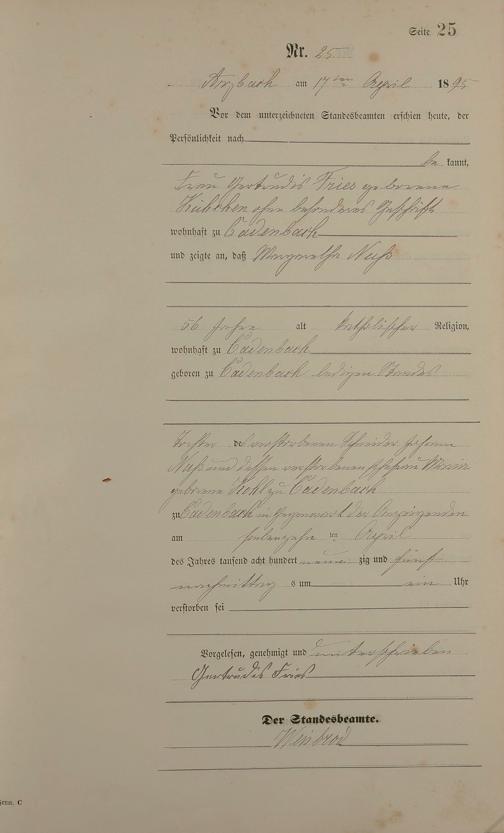 Seite 25
Nr. 25
Arzbach am 17ten April 1895
Vor dem unterzeichneten Standesbeamten erschien heute, der
Persönlichkeit nach
be kannt,
Frau Gertrudis Fries geborene
ohne besonderes Geschäft
wohnhaft zu Cadenbach
und zeigte an, daß Margaretha Nuß
56 Jahre alt katholischer Religion,
wohnhaft zu Cadenbach
geboren zu Cadenbach ledigen Standes
Tochter des verstorbenen Schneider Johann
Nuß und dessen verstorbenen Ehefrau
geborene Kohl zu Cadenbach
zu Cadenbach in Gegenwart der Anzeigenden
am ten April
des Jahres tausend acht hundert neun zig und fünf
nachmittag s um ein Uhr
verstorben sei
Vorgelesen, genehmigt und unterschrieben
Gertrudis Fries
Der Standesbeamte.
Weinbrod